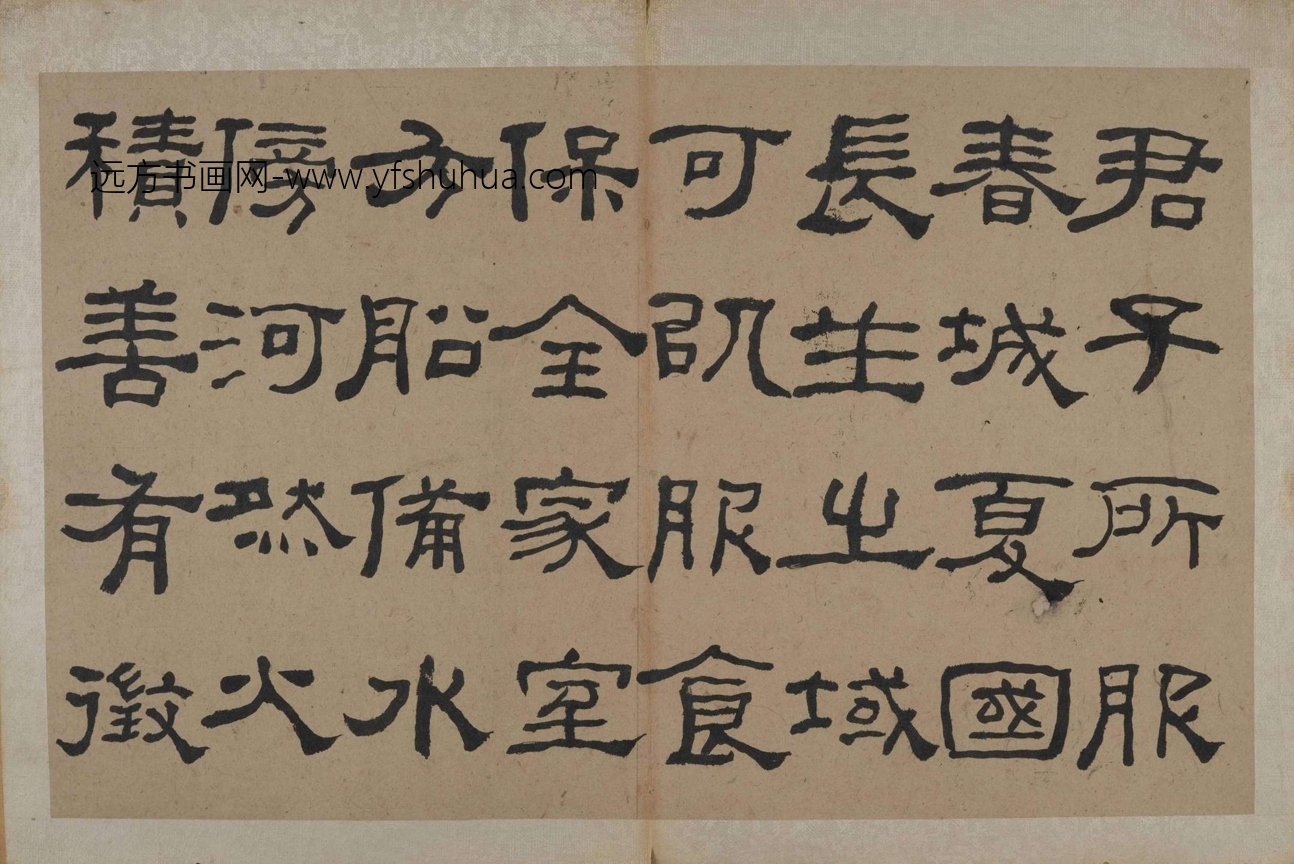 君子所服
春城夏國
長生之域
可以服食
保全家室
方船備水
傍河然火
積善有徵
远方书画网-www.yfshuhua.com